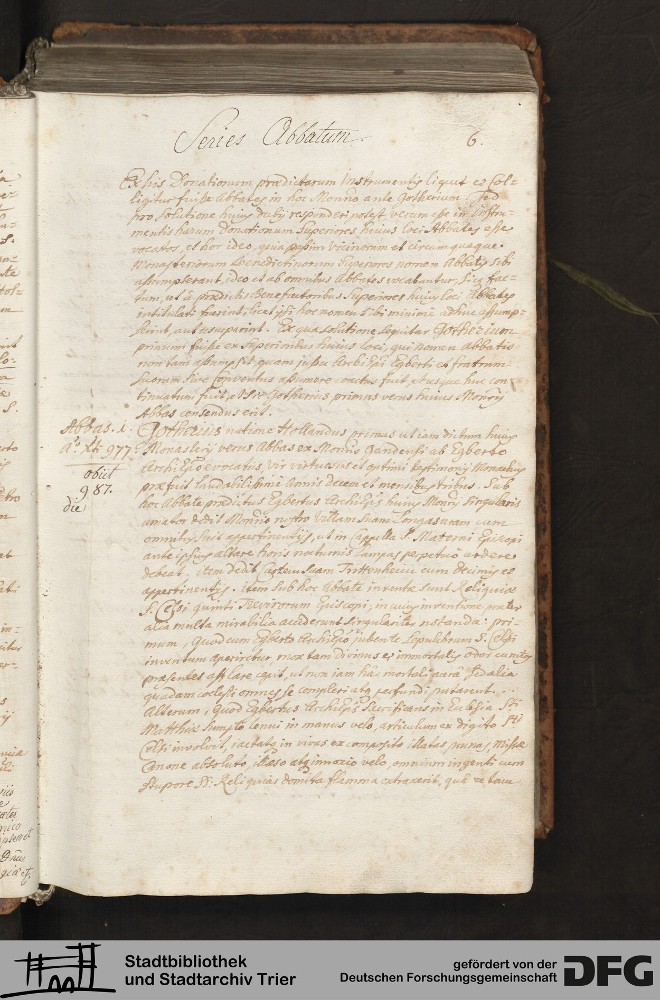 Series Abbatum
6.
Ex his Donationum prædictarum Instrumentis liquet et Col-
ligitur fuisse Abbates in hoc Monrio ante Gotherium. Sed
pro solutione huius dubij responderi potest verum esse in Instru-
mentis harum donationum Superiores huius loci Abbates esse
vocatos, et hoc ideo, quia passim vicinorum et circumquaque
Monasteriorum Benedictinorum Superiores nomen Abbatis sibi
assumpserant, ideo et ab omnibus Abbates vocabantur, sicq fac-
tum, ut à prædictis Benefactoribus Superiores huius loci Abbates
intitulati fuerint, licet ipsi hoc nomen sibi minime adhuc assump-
serint, aut usurparint. Ex qua solutione sequitur Gotherium
primum fuisse ex Superioribus huius loci, qui nomen Abbatis
non tam assumpsit, quam jussu Archi Epi Egberti et fratrum
suorum sive Conventus assumere coactus fuit, atque huc con
tinuatum fuit, et Gotherius primus verus huius Monrij
Abbas censendus erit.
Abbas. 1.
Aº. Xti 977.
obiit
987.
die
Gotherius natione Hollandus primus ut iam dictum huius
Monasterij verus Abbas ex Monrio Gandensi ab Egberto
ArchiEpo evocatus, vir virtuosus et optimi testimonij Monachus
præfuit laudabilissime Annis decem et mensibus tribus. Sub
hoc Abbate prædictus Egbertus ArchiEpus huius Monrij singularis
amator dedit Monrio nostro Villam suam Longasuram cum
omnibus suis appertinentijs, ut in Cappella S. Materni Episcopi
ante ipsius altare horis nocturnis lampas perpetuo ardere
debeat, item dedit Curtem suam Trittenheim cum decimis et
appertinentijs. item sub hoc Abbate inventæ sunt Reliquiæ
S. Celsi quinti Trevirorum Episcopi, in cuius inventione præter
alia multa mirabilia acciderunt singulariter notanda: pri-
mum, Quod cum Egberto ArchiEpo jubente sepulchrum S. Celsi
inventum aperiretur, mox tam divinus et immortalis odor cunctos
præsentes afflare cepit, ut non iam hac mortali aura sed alia
quadam coelesti omnes se compleri atq perfundi putarent.
Alterum, Quod Egbertus ArchiEpus Sacrificans in Ecclesia Sti
Matthiæ sumpto tenui in manus velo, articulum ex digito Sti
Celsi involvit, iactatq in vivas ex composito illatas prunas, Missæ
Canone absoluto, illæso atq innoxio velo, omnium ingenti cum
stupore SS. Reliquias domita flamma extraxerit, quæ re tam
Stadtbibliothek
und Stadtarchiv Trier
gefördert von der
Deutschen Forschungsgemeinschaft
DFG